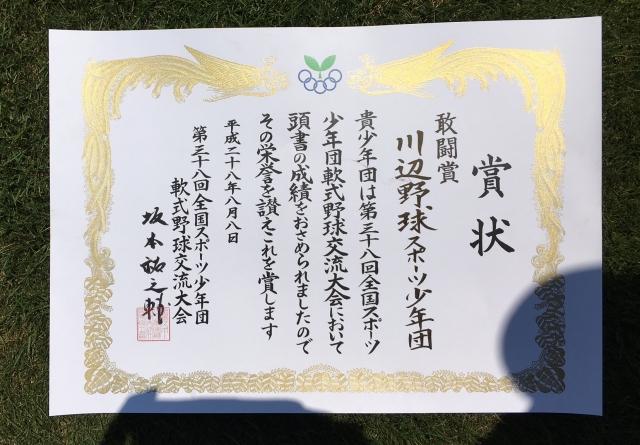 賞状
敢闘賞
川辺野球スポーツ少年団
貴少年団は第三十八回全国スポーツ
少年団軟式野球交流大会において
頭書の成績をおさめられましたので
その栄誉を讃えこれを賞します
平成二十八年八月八日
第三十八回全国スポーツ少年団
軟式野球交流大会
坂本祐之輔